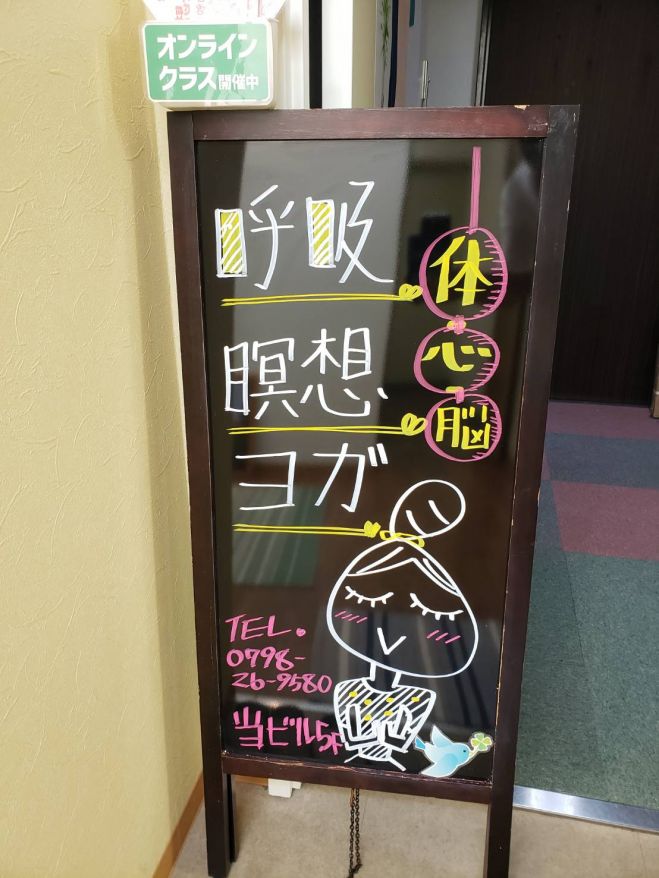 オンライン
クラス開催中
呼吸
瞑想
ヨガ
体
心
脳
TEL.
0798-
26-9580
当ビル5F